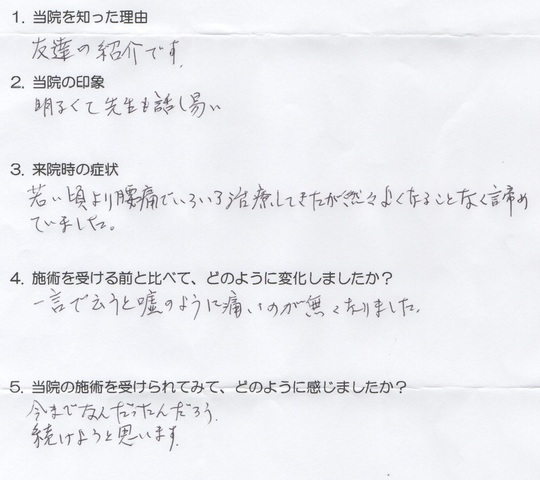 1. 当院を知った理由
友達の紹介です。
2. 当院の印象
明るくて先生も話し易い
3. 来院時の症状
若い頃より腰痛でいろいろ治療してきたが然々よくなることなく諦め
ていました。
4. 施術を受ける前と比べて、どのように変化しましたか？
一言で云うと嘘のように痛いのが無くなりました。
5. 当院の施術を受けられてみて、どのように感じましたか？
今までなんだったんだろう。
続けようと思います。